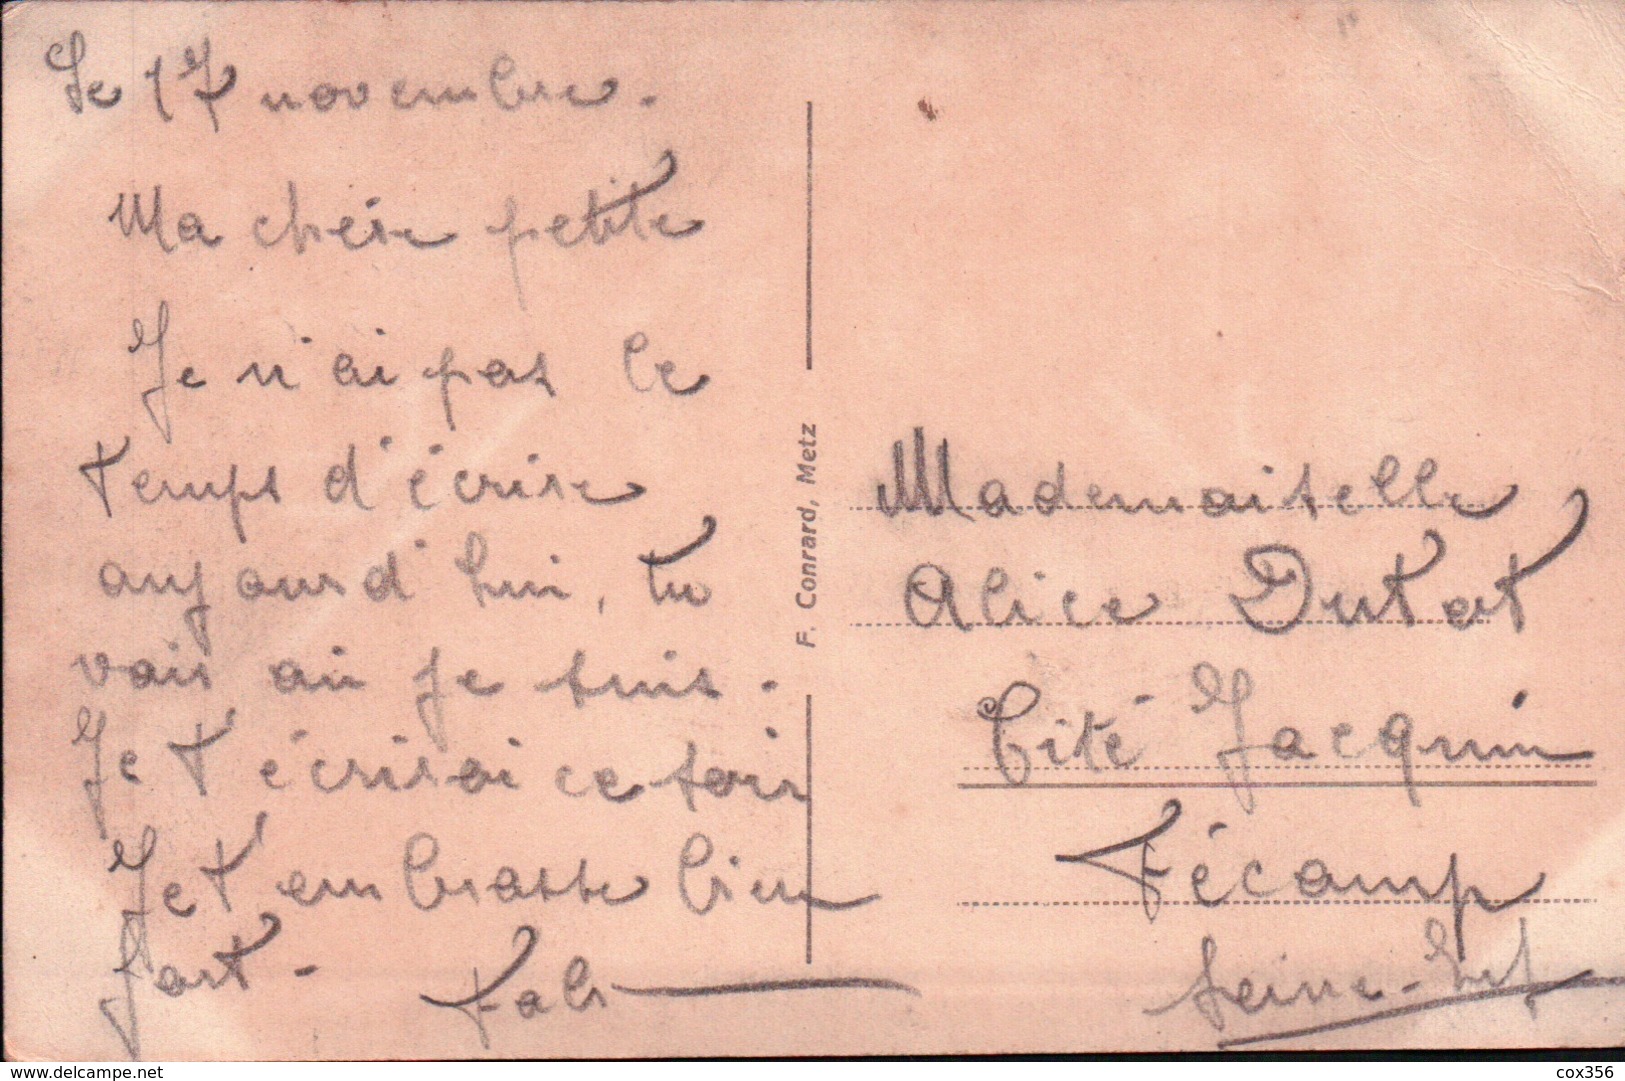 Le 17 novembre.
Ma chère petite
Je n'ai pas le
temps d'écrire
aujourd'hui, tu
vois où je suis.
Je t'écrirai ce soir
Je t'embrasse bien
fort -
F. Conrard, Metz
Mademoiselle
Alice Dutot
Cité Jacquin
Fécamp
Seine-Inf
www.delcampe.net
cox356